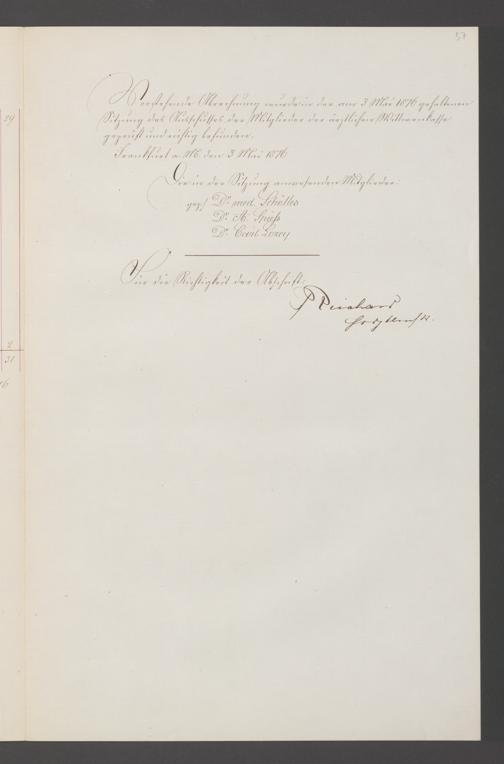 57
Vorstehende Abrechnung wurde in der am 3 Mai 1876 gehaltenen
Sitzung des Ausschusses der Mitglieder der ärztlichen Wittwenkasse
geprüft und richtig befunden.
Frankfurt a. M. den 3 Mai 1876
Die in der Sitzung anwesenden Mitglieder:
gez/ Dr. med. Schölles
Dr. A. Spiess
Dr. Carl Lorey
Für die Richtigkeit der Abschrift:
Reichard
29
2
31
16